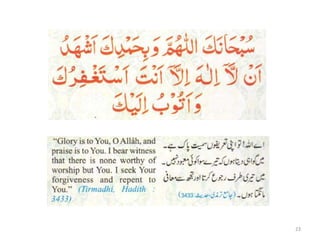 سُبْحَانَكَ اللّٰهُمَّ وَبِحَمْدِكَ اَشْهَدُ
اَنْ لَّآ اِلٰهَ اِلَّآ اَنْتَ اَسْتَغْفِرُكَ
وَاَتُوْبُ اِلَيْكَ
"Glory is to You, O Allâh, and
praise is to You. I bear witness
that there is none worthy of
worship but You. I seek Your
forgiveness and repent to
You." (Tirmadhi, Hadith :
3433)
اے اللہ! تو اپنی تعریفوں سمیت پاک ہے۔
میں گواہی دیتا ہوں کہ تیرے سوا کوئی معبود نہیں۔
میں تیری طرف رجوع کرتا اور تجھ سے معافی
مانگتا ہوں۔ (جامع ترمذی حدیث: 3433)
23